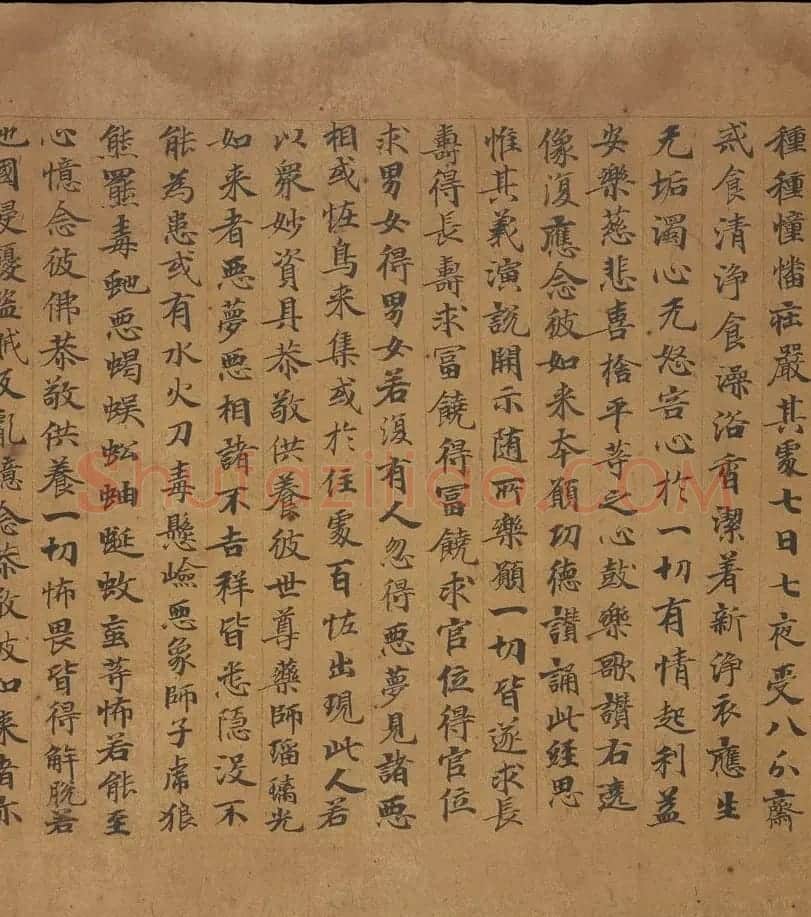 種種憧憣莊嚴其處七日七夜受八分齋
戒食清淨食澡浴香潔着新淨衣應生
无垢濁心无怒害心於一切有情起利益
安樂慈悲喜捨平等之心鼓樂歌讚右遶
像復應念彼如来本願功德讃誦此經思
惟其義演說開示随所樂願一切皆遂求長
壽得長壽求冨饒得冨饒求官位得官位
求男女得男女若復有人忽得惡夢見諸惡
相或恠鳥来集或於住處百恠出現此人若
以衆妙資具恭敬供養彼世尊藥師瑠璃光
如来者惡夢惡相諸不吉祥皆悉隱沒不
能為患或有水火刀毒懸嶮惡象師子虎狼
熊羆毒虵惡蝎蜈蚣蚰蜒蚊䖟等怖若能至
心憶念彼佛恭敬供養一切怖畏皆得解脫若
他國侵擾盜賊反亂憶念恭敬彼如来者亦
Shufaziliao.COM